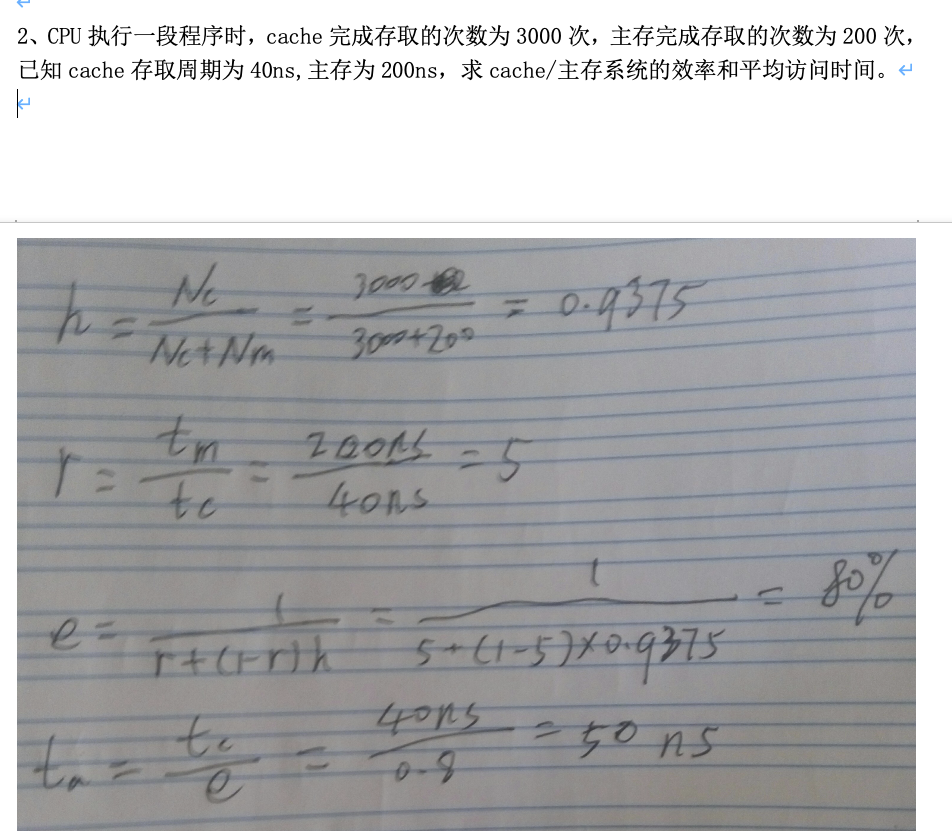 2、CPU 执行一段程序时，cache 完成存取的次数为 3000 次，主存完成存取的次数为 200 次，
已知 cache 存取周期为 40ns,主存为 200ns，求 cache/主存系统的效率和平均访问时间。
h = Nc / (Nc+Nm) = 3000 / (3000+200) = 0.9375
r = tm / tc = 200ns / 40ns = 5
e = 1 / (r+(1-r)h) = 1 / (5+(1-5)×0.9375) = 80%
ta = tc / e = 40ns / 0.8 = 50 ns